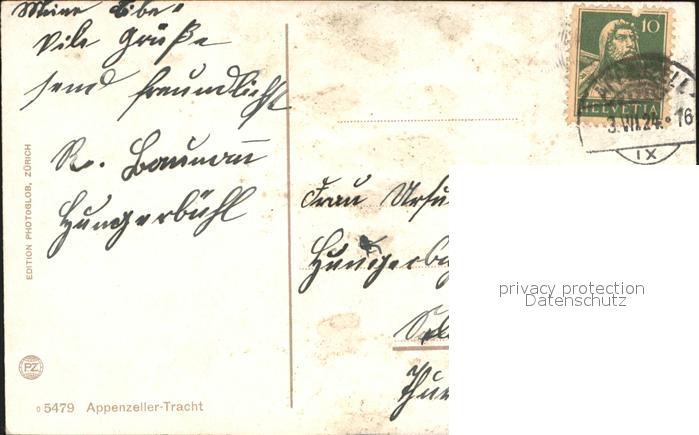 Meine Libe
Vile Grüße
send freundlichst
R. Baumann
Hungerbühl
EDITION PHOTOGLOB, ZÜRICH
PZ
o 5479 Appenzeller-Tracht
10
HELVETIA
3.VII.24. 16
IX
Frau Ursu
Hungerb
Thur
privacy protection
Datenschutz